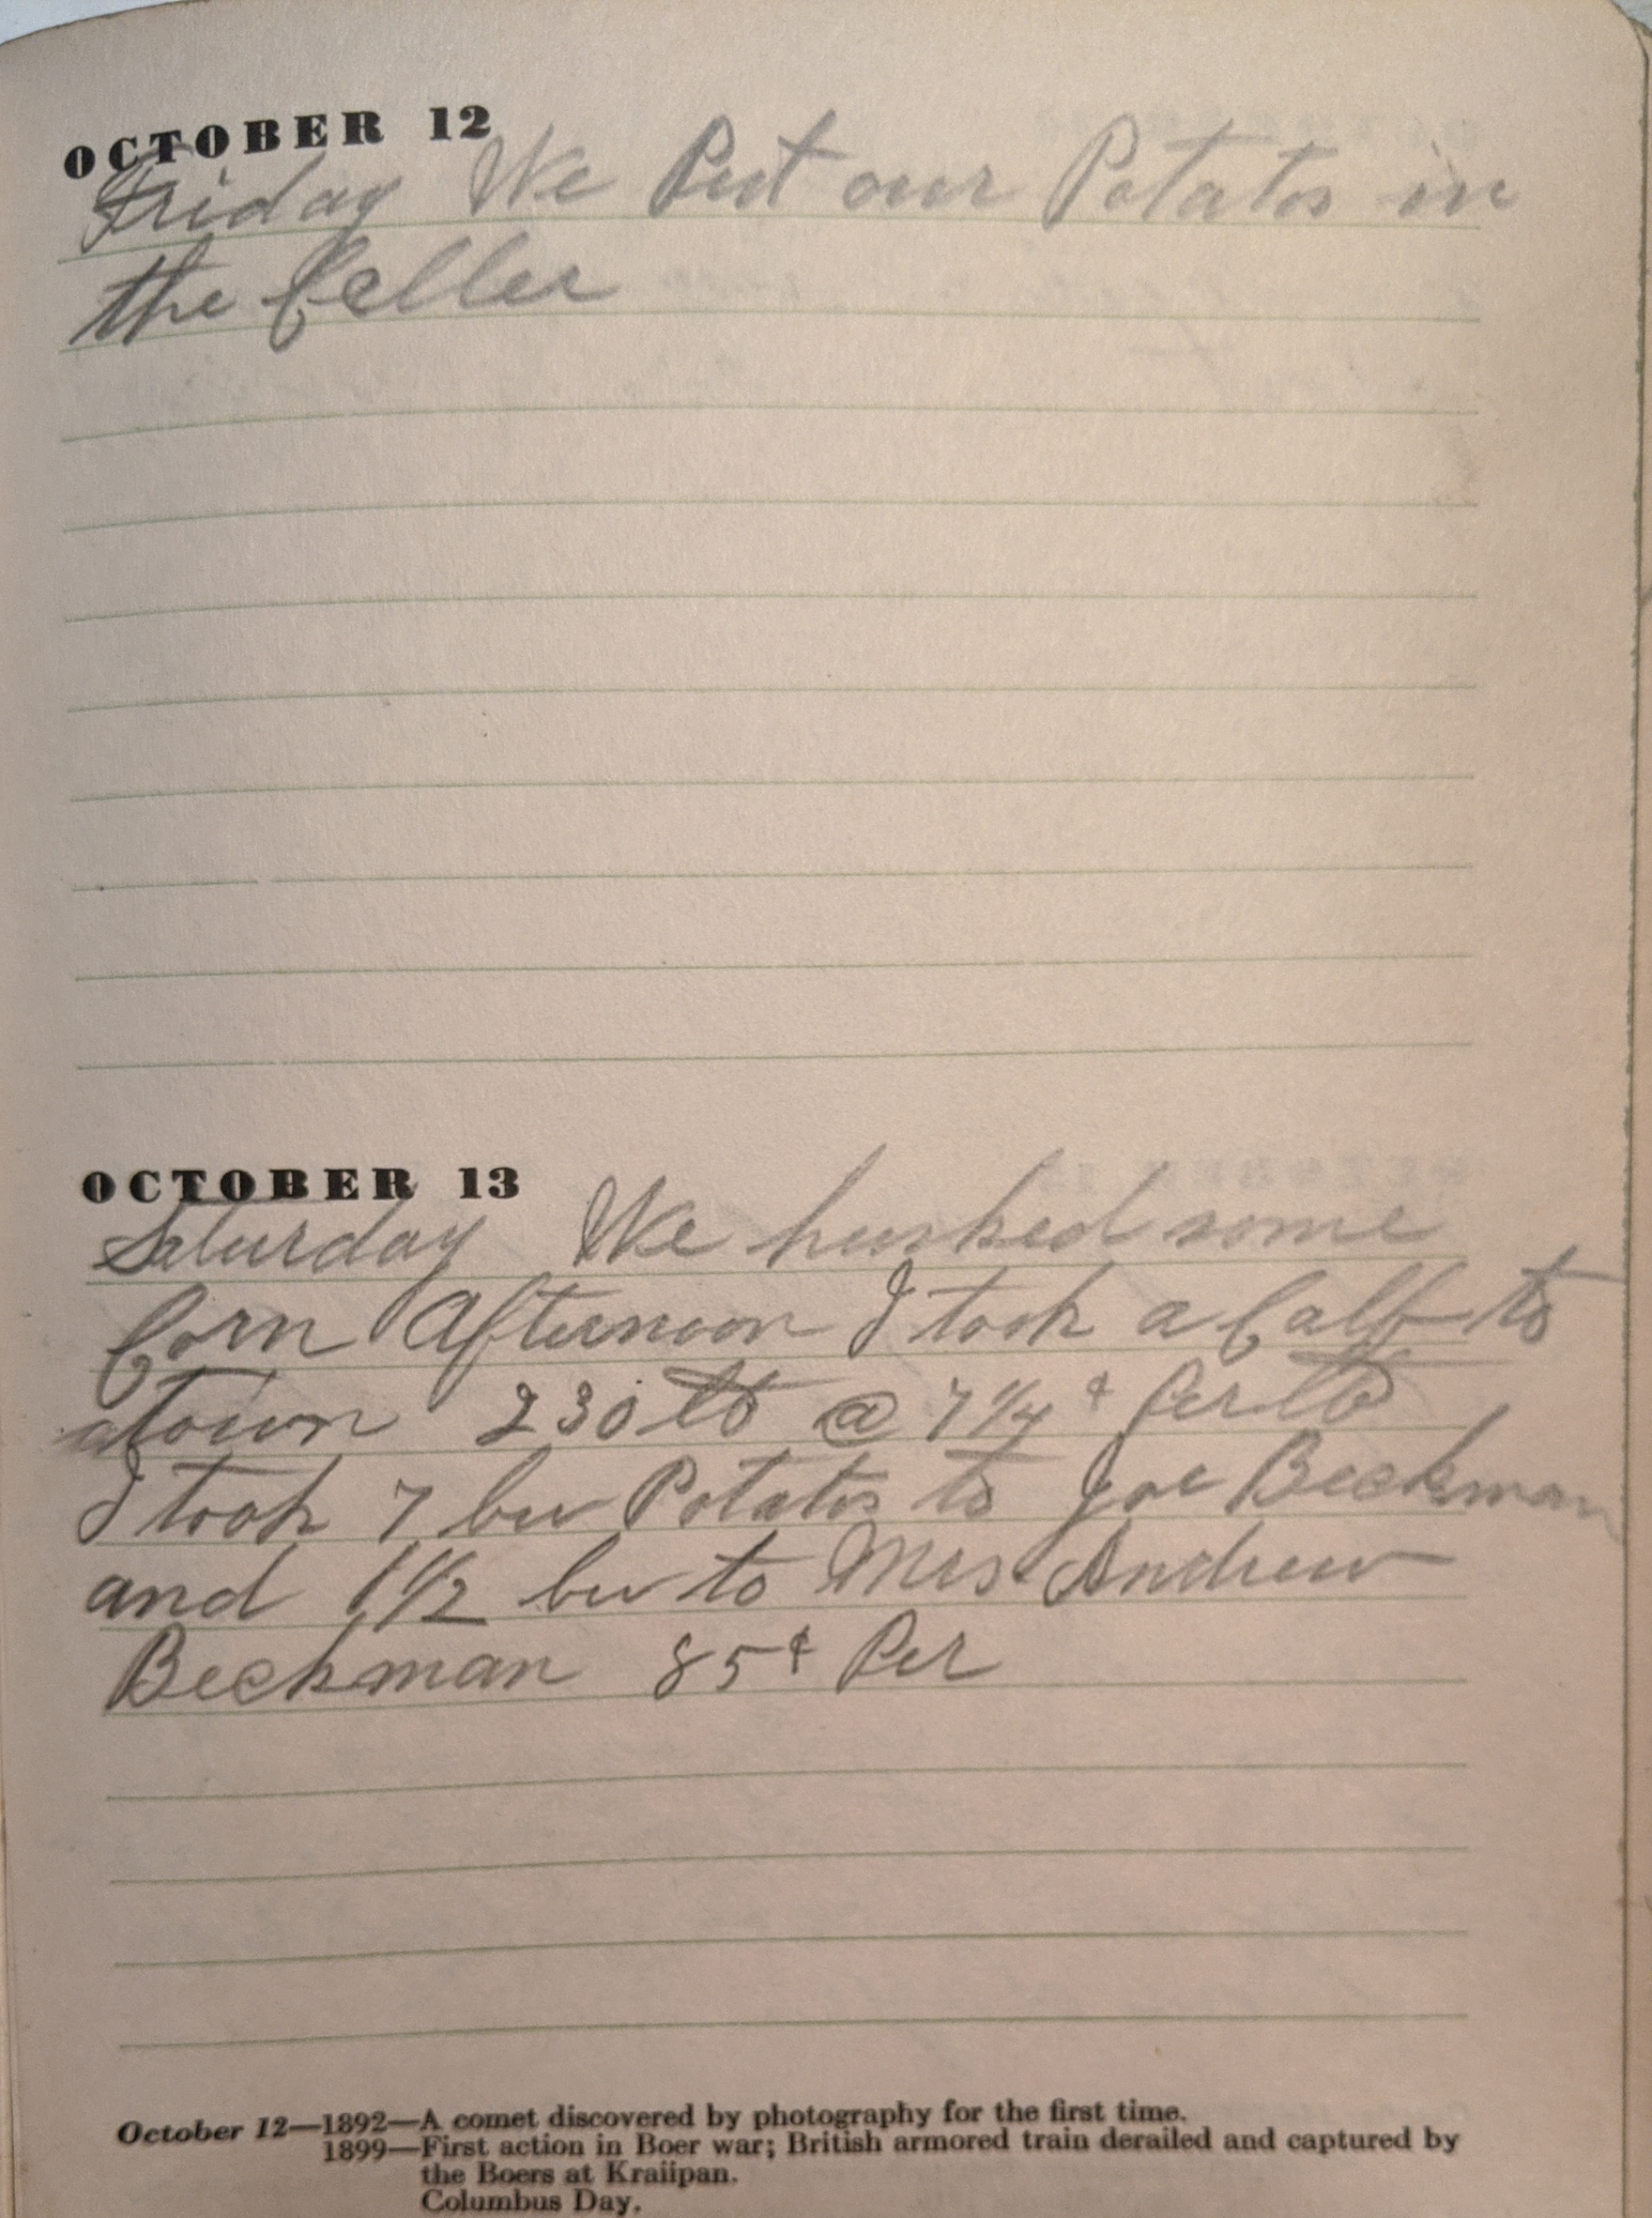 OCTOBER 12
Friday We Put our Potatos in
the Celler
OCTOBER 13
Saturday We husked some
Corn Afternoon I took a Calf to
town 230 lb @ 7 1/4 ¢ Per lb
I took 7 bu Potatos to Joe Beckman
and 1 1/2 bu to Mrs Andrew
Beckman 85¢ Per
October 12—1892—A comet discovered by photography for the first time.
1899—First action in Boer war; British armored train derailed and captured by
the Boers at Kraiipan.
Columbus Day.